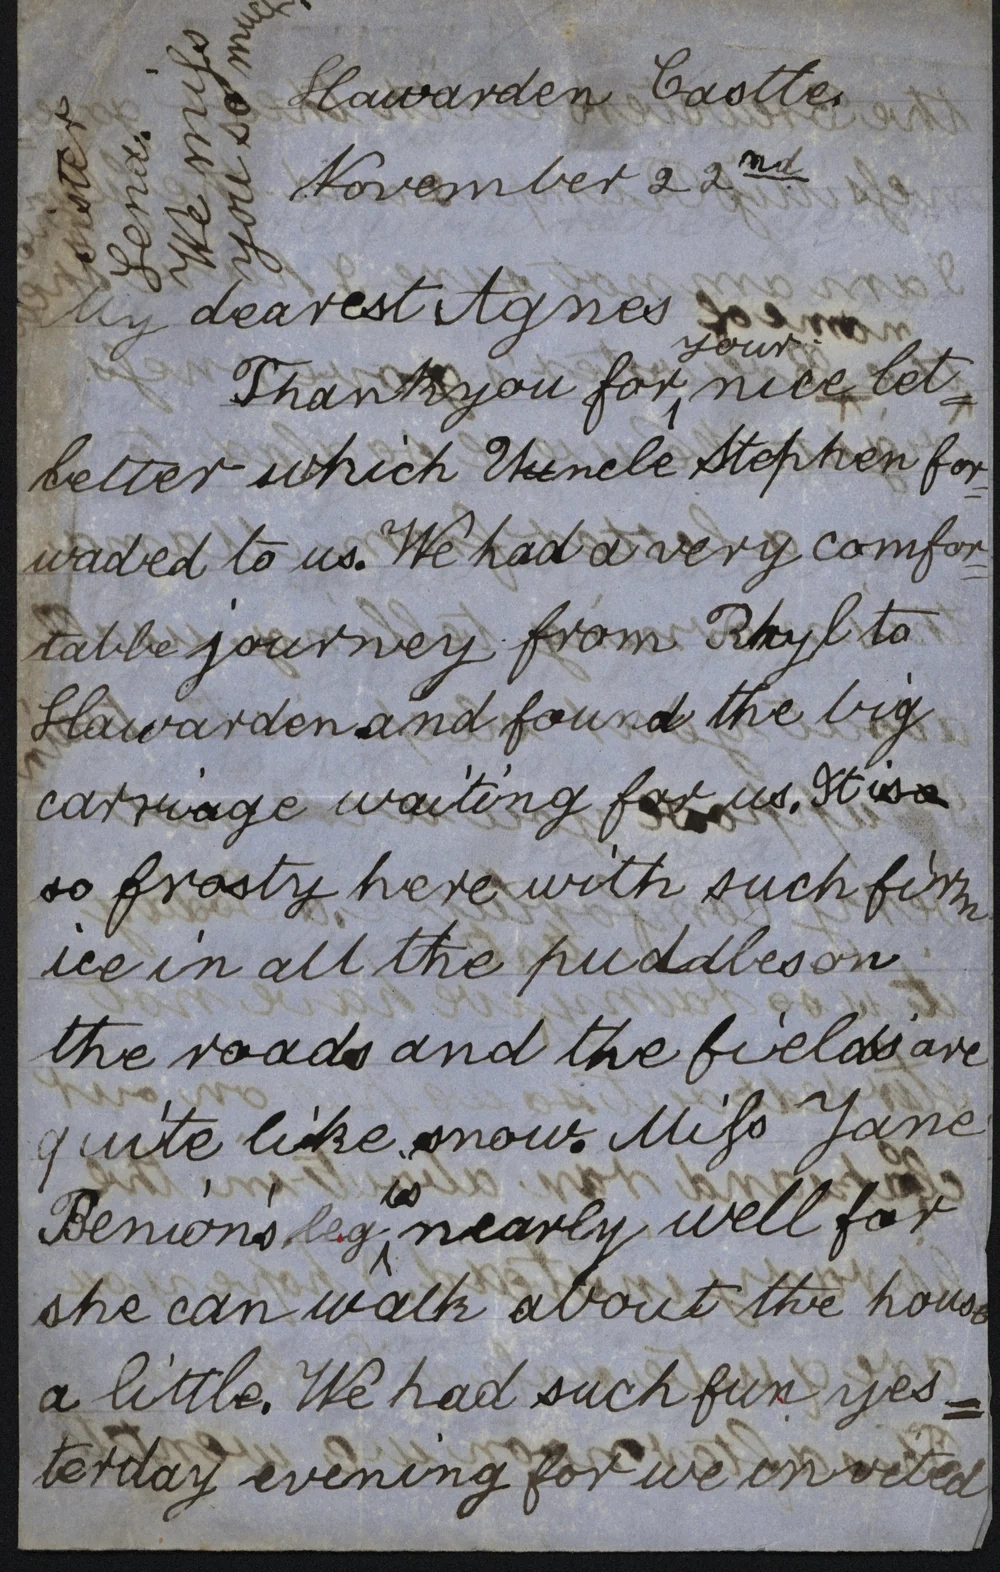 sister
Lena.
We miss
you so much
Hawarden Castle.
November 22nd
My dearest Agnes
Thank you for your nice let=
better which Uncle Stephen for=
waded to us. We had a very comfor=
table journey from Rhyl to
Hawarden and found the big
carriage waiting for us. It is a
so frosty here with such firm
ice in all the puddles on
the roads and the fields are
quite like snow. Miss Jane
Benion's leg is nearly well for
she can walk about the house
a little. We had such fun yes=
terday evening for we invited